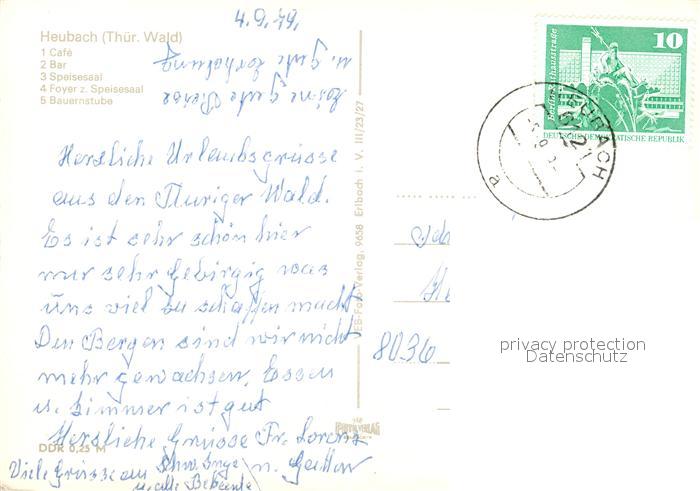 4.9.79,
Heubach (Thür. Wald)
1 Café
2 Bar
3 Speisesaal
4 Foyer z. Speisesaal
5 Bauernstube
gute
u. gute Erholung
Herzliche Urlaubsgrüsse
aus den Thuriger Wald.
Es ist sehr schön hier
nur sehr Gebirgig was
Uns viel zu schaffen macht
Den Bergen sind wir nicht
mehr gewachsen, Essen
u. Zimmer ist gut
Herzliche Grüsse Fr. Lorenz
u. Gatten
Viele Grüsse an
u. alle Bekannte
DDR 0,25 M
VEB-Foto-Verlag, 9658 Erlbach i. V. III/23/27
10
Berlin-Rathausstraße
DEUTSCHE DEMOKRATISCHE REPUBLIK
HEUBACH
6121
a
8036
privacy protection
Datenschutz